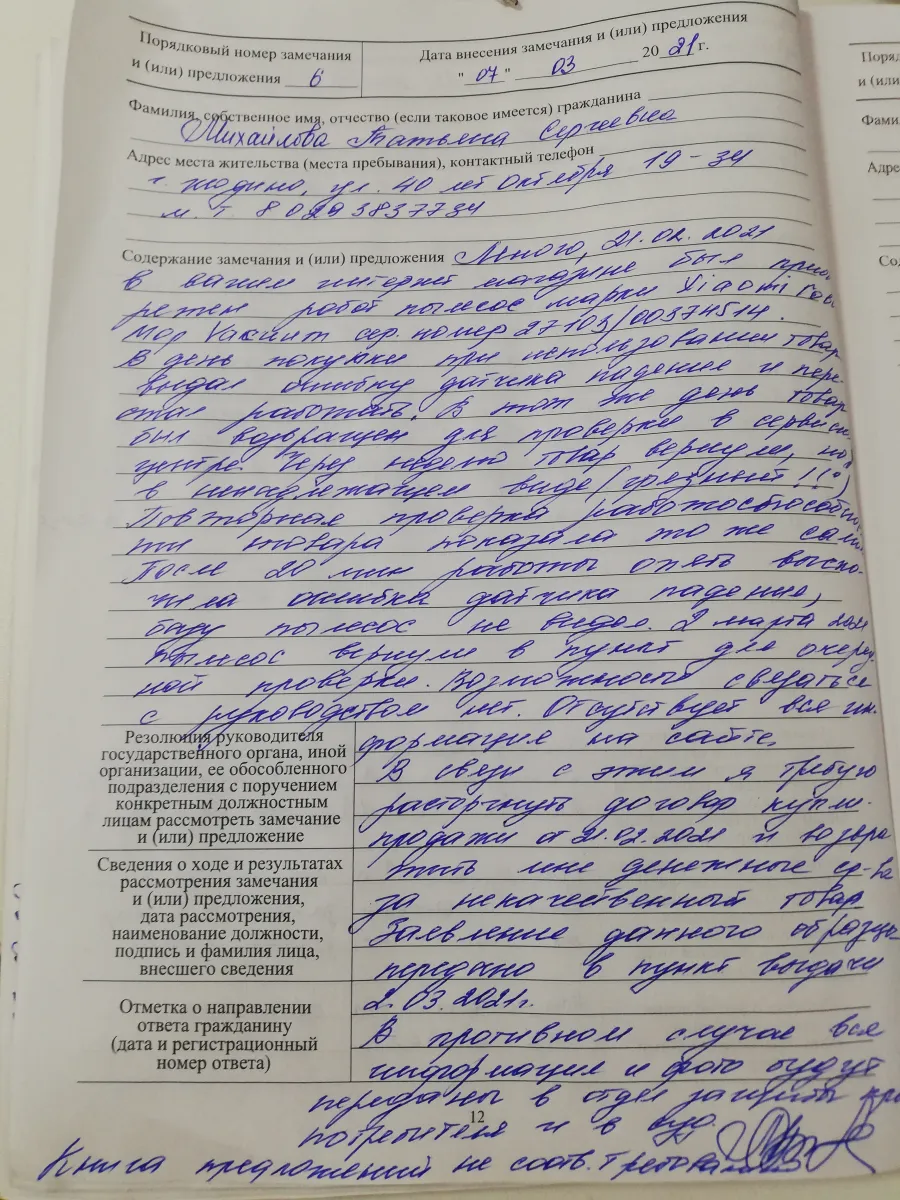 Порядковый номер замечания
и (или) предложения 6
Дата внесения замечания и (или) предложения
"07" 03 2021 г.
Фамилия, собственное имя, отчество (если таковое имеется) гражданина
Михайлова Татьяна Сергеевна
Адрес места жительства (места пребывания), контактный телефон
г. Жодино, ул. 40 лет Октября 19-34
м.т 8 029 3837734
Содержание замечания и (или) предложения Мною, 21.02.2021
в вашем интернет магазине был приоб
режен робот пылесос марки Xiaomi
Vакиит сер. номер 27103/00374514.
В день покупки при использовании товар
выдал ошибку датчика падение и пере-
стал работать. В тот же день товар
был возвращен для проверки в сервисн.
центре. Через неделю товар вернули, но
в ненадлежащем виде (грязный!!!)
Повторная проверка работоспособнос
ти товара показала то же самое
После 20 мин работы опять выско-
чила ошибка датчика падение,
базу пылесос не видел. 2 марта 2021
пылесос вернули в пункт для очеред
ной проверки. Возможности связаться
с руководством нет. Отсутствует вся ин-
формация на сайте.
Резолюция руководителя
государственного органа, иной
организации, ее обособленного
подразделения с поручением
конкретным должностным
лицам рассмотреть замечание
и (или) предложение
В связи с этим я требую
расторгнуть договор купли-
продажи от 21.02.2021 и возвра
тить мне денежные ср-ва
за некачественный товар
Заявление данного образца
передано в пункт выдачи
2.03.2021г.
В противном случае вся
информация и фото будут
переданы в отдел защиты прав
потребителя и в суд.
Сведения о ходе и результатах
рассмотрения замечания
и (или) предложения,
дата рассмотрения,
наименование должности,
подпись и фамилия лица,
внесшего сведения
Отметка о направлении
ответа гражданину
(дата и регистрационный
номер ответа)
12
Книга предложений не соотв. требованиям
Поряд
и (или
Фамил
Адрес
Со